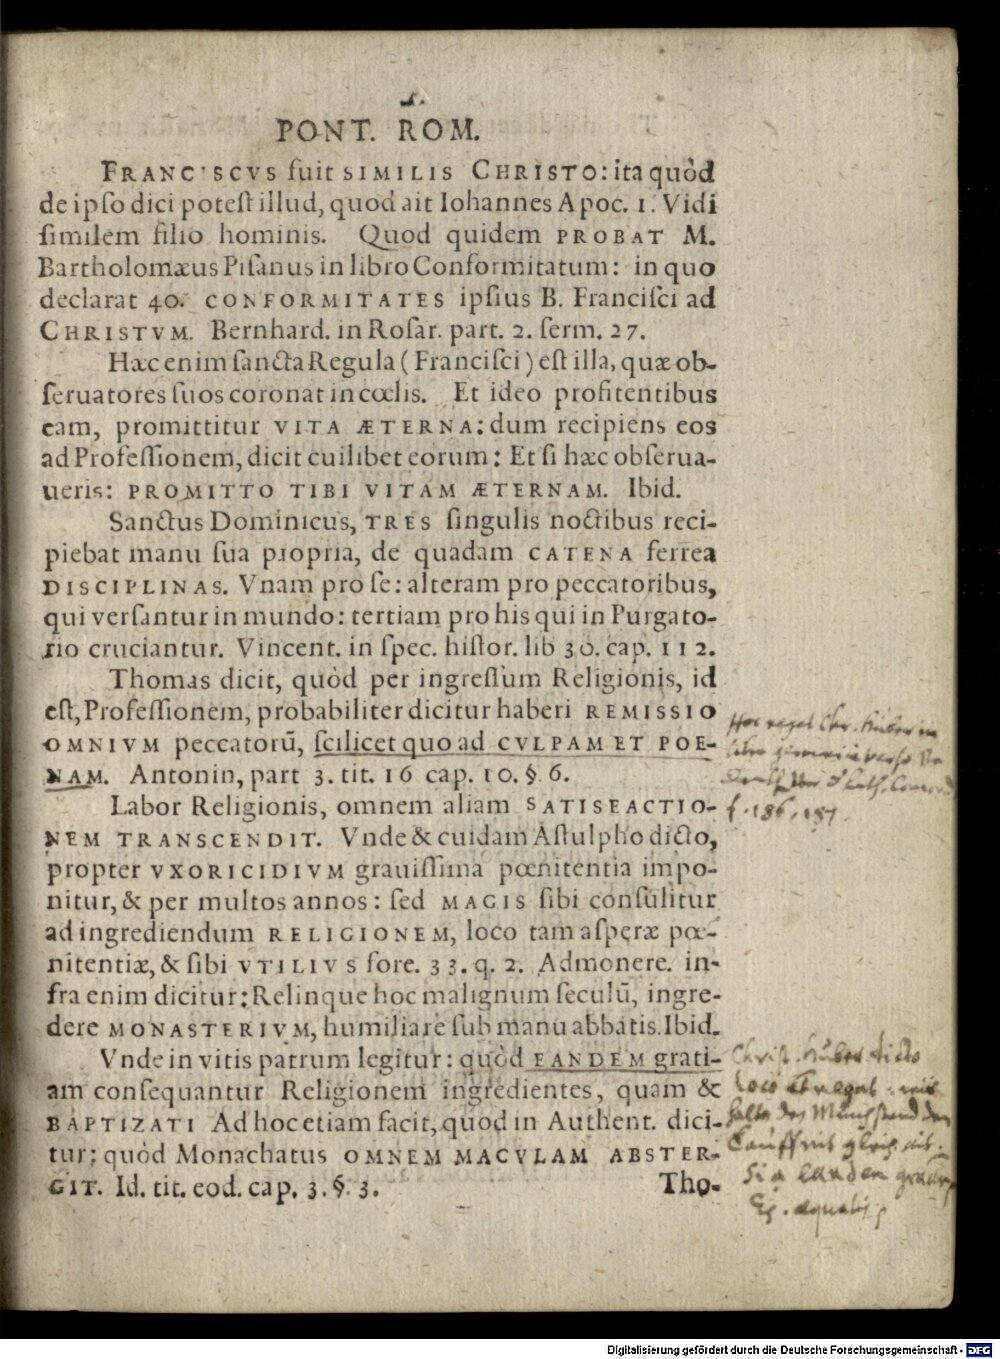 PONT. ROM.
FRANC'SCVS fuit SIMILIS CHRISTO: ita quòd
de ipso dici potest illud, quod ait Iohannes Apoc. 1. Vidi
similem filio hominis. Quod quidem PROBAT M.
Bartholomæus Pisanus in libro Conformitatum: in quo
declarat 40. CONFORMITATES ipsius B. Francisci ad
CHRISTVM. Bernhard. in Rosar. part. 2. serm. 27.
Hæc enim sancta Regula (Francisci) est illa, quæ ob-
seruatores suos coronat in cœlis. Et ideo profitentibus
eam, promittitur VITA ÆTERNA: dum recipiens eos
ad Professionem, dicit cuilibet eorum: Et si hæc obserua-
ueris: PROMITTO TIBI VITAM ÆTERNAM. Ibid.
Sanctus Dominicus, TRES singulis noctibus reci-
piebat manu sua propria, de quadam CATENA ferrea
DISCIPLINAS. Vnam pro se: alteram pro peccatoribus,
qui versantur in mundo: tertiam pro his qui in Purgato-
rio cruciantur. Vincent. in spec. histor. lib 30. cap. 112.
Thomas dicit, quòd per ingressum Religionis, id
est, Professionem, probabiliter dicitur haberi REMISSIO
OMNIVM peccatorū, scilicet quo ad CVLPAM ET POE-
NAM. Antonin, part 3. tit. 16 cap. 10. §. 6.
Labor Religionis, omnem aliam SATISEACTIO-
NEM TRANSCENDIT. Vnde & cuidam Astulpho dicto,
propter VXORICIDIVM grauissima pœnitentia impo-
nitur, & per multos annos: sed MAGIS sibi consulitur
ad ingrediendum RELIGIONEM, loco tam asperæ pœ-
nitentiæ, & sibi VTILIVS fore. 33. q. 2. Admonere. in-
fra enim dicitur: Relinque hoc malignum seculū, ingre-
dere MONASTERIVM, humiliare sub manu abbatis. Ibid.
Vnde in vitis patrum legitur: quòd EANDEM grati-
am consequantur Religionem ingredientes, quam &
BAPTIZATI Ad hoc etiam facit, quod in Authent. dici-
tur: quòd Monachatus OMNEM MACVLAM ABSTER-
GIT. Id. tit. eod. cap. 3. §. 3.
Tho-
f. 186. 187
Christ. Huber dicto
loco
Digitalisierung gefördert durch die Deutsche Forschungsgemeinschaft - DFG